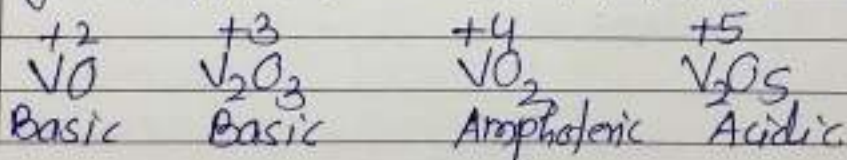 +2 +3 +4 +5
VO V₂O₃ VO₂ V₂O₅
Basic Basic Amphoteric Acidic